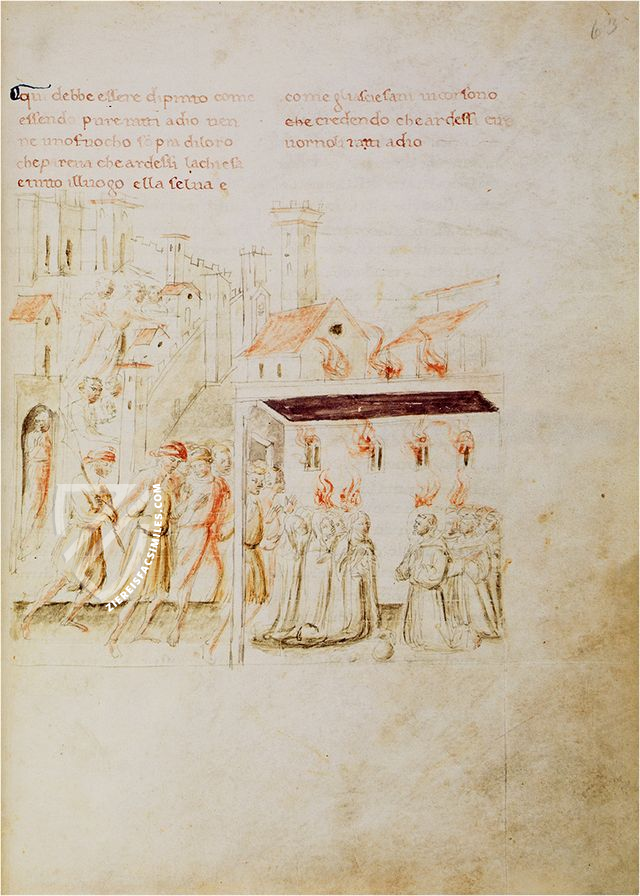 qui debbe essere dipinto come
essendo pure ratti a dio ven
ne uno fuocho sopra di loro
che pareva che ardessi la chiesa
e tutto illuogo ella selva e
come gli asciesani vi corsono
che credendo che ardessi
ratti a dio
63
ZIEREISFACSIMILES.COM